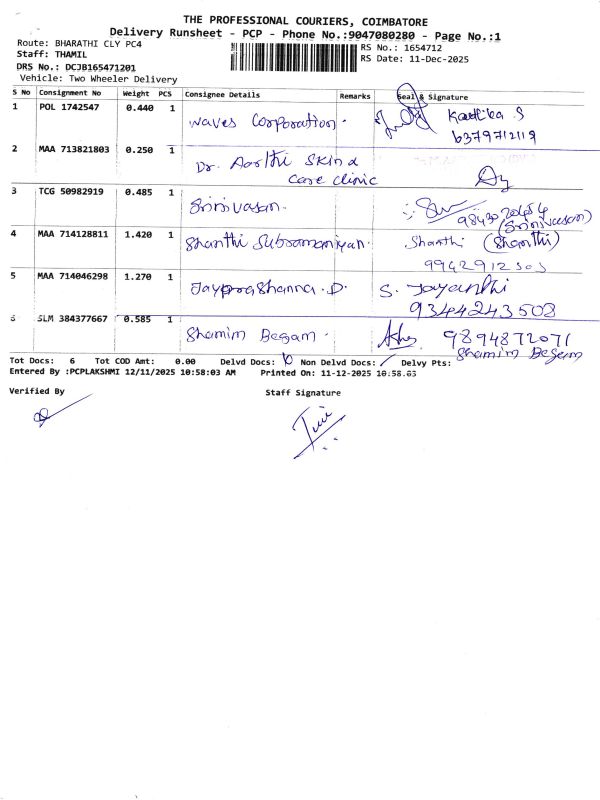 THE PROFESSIONAL COURIERS, COIMBATORE
Delivery Runsheet - PCP - Phone No.:9047080280 - Page No.:1
Route: BHARATHI CLY PC4
Staff: THAMIL
DRS No.: DCJB165471201
Vehicle: Two Wheeler Delivery
RS No.: 1654712
RS Date: 11-Dec-2025
S No Consignment No Weight PCS Consignee Details Remarks Seal & Signature
1 POL 1742547 0.440 1 Waves Corporation. Karthika S
6379712119
2 MAA 713821803 0.250 1 Dr. Aarthi Skin &
Care clinic
3 TCG 50982919 0.485 1 Srinivasan.
(Srinivasan)
4 MAA 714128811 1.420 1 Shanthi Subramaniyan. Shanthi (Shanthi)
5 MAA 714046298 1.270 1 Jayprashanna. D. S. Jayanthi
9344243508
6 SLM 384377667 0.585 1 Shamim Begam. 9894872071
Shamim Begam
Tot Docs: 6 Tot COD Amt: 0.00 Delvd Docs: Non Delvd Docs: Delvy Pts:
Entered By :PCPLAKSHMI 12/11/2025 10:58:03 AM Printed On: 11-12-2025 10:58:03
Verified By Staff Signature